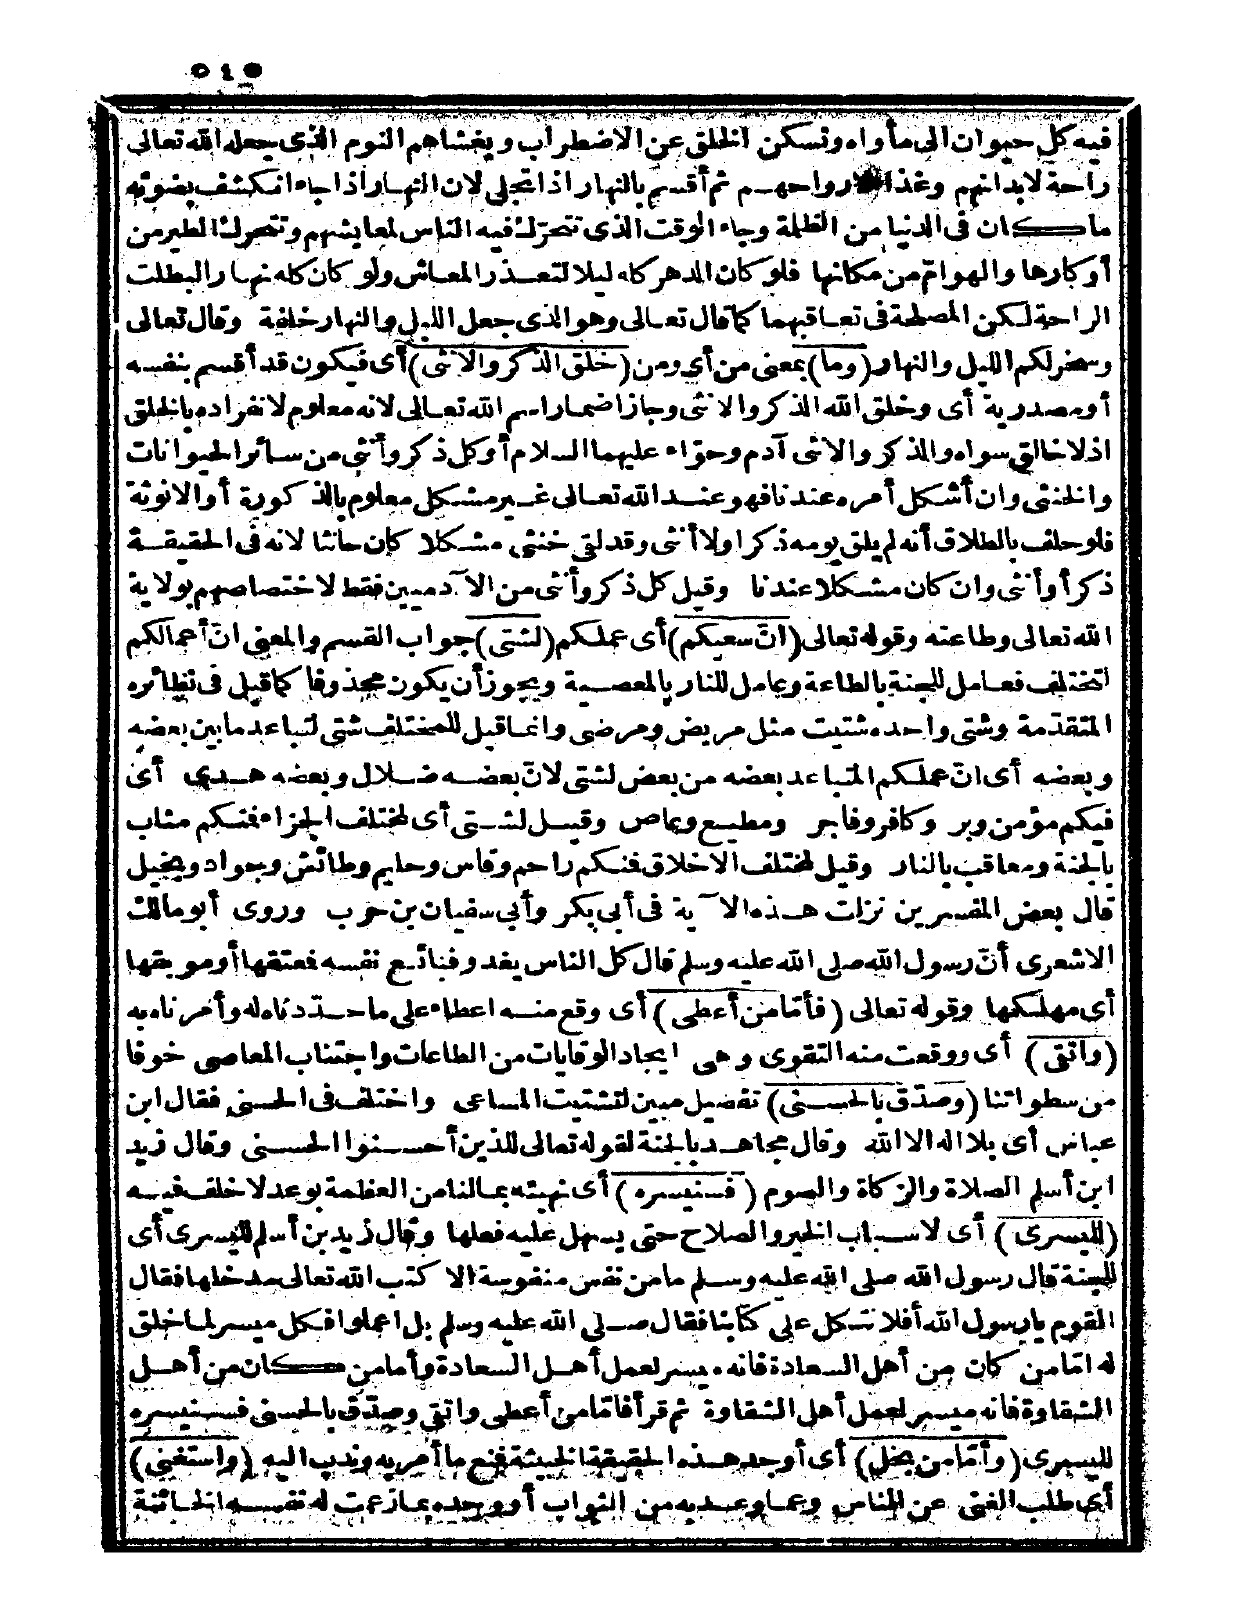 ٥٤٥
فيه كل حيوان الى مأواه وتسكن الخلق عن الاضطراب ويغشاهم النوم الذى جعله الله تعالى
راحة لابدانهم وغذاء لارواحهم ثم أقسم بالنهار اذا تجلى لان النهار اذا جاء انكشف بضوئه
ما كان فى الدنيا من الظلمة وجاء الوقت الذى تتحرّك فيه الناس لمعايشهم وتتحرك الطير من
أوكارها والهوامّ من مكانها فلو كان الدهر كله ليلا لتعذر المعاش ولو كان كله نهارا لبطلت
الراحة لكن المصلحة فى تعاقبهما كما قال تعالى وهو الذى جعل الليل والنهار خلفة وقال تعالى
وسخر لكم الليل والنهار (وما) بمعنى من أى ومن (خلق الذكر والانثى) أى فيكون قد أقسم بنفسه
أو مصدرية أى وخلق الله الذكر والانثى وجاز اضمار اسم الله تعالى لانه معلوم لانفراده بالخلق
اذ لا خالق سواه والذكر والانثى آدم وحوّاء عليهما السلام أو كل ذكر وأنثى من سائر الحيوانات
والخنثى وان أشكل أمره عندنا فهو عند الله تعالى غير مشكل معلوم بالذكورة أو الانوثة
فلو حلف بالطلاق أنه لم يلق يومه ذكرا ولا أنثى وقد لقى خنثى مشكلا كان حانثا لانه فى الحقيقة
ذكر أو أنثى وان كان مشكلا عندنا وقيل كل ذكر وأنثى من الآدميين فقط لاختصاصهم بولاية
الله تعالى وطاعته وقوله تعالى (انّ سعيكم) أى عملكم (لشتى) جواب القسم والمعنى انّ أعمالكم
لتختلف فعامل للجنة بالطاعة وعامل للنار بالمعصية ويجوز أن يكون محذوفا كما قيل فى نظائره
المتقدّمة وشتى واحده شتيت مثل مريض ومرضى وانما قيل للمختلف شتى لتباعد ما بين بعضه
وبعضه أى انّ عملكم المتباعد بعضه من بعض لشتى لانّ بعضه ضلال وبعضه هدى أى
فيكم مؤمن وبر وكافر وفاجر ومطيع وعاص وقيل لشتى أى لمختلف الجزاء فمنكم مثاب
بالجنة ومعاقب بالنار وقيل لمختلف الاخلاق فمنكم راحم وقاس وحليم وطائش وجواد وبخيل
قال بعض المفسرين نزلت هذه الآية فى أبى بكر وأبى سفيان بن حرب وروى أبو مالك
الاشعرى أنّ رسول الله صلى الله عليه وسلم قال كل الناس يغدو فبائع نفسه فمعتقها أو موبقها
أى مهلكها وقوله تعالى (فأمّا من أعطى) أى وقع منه اعطاء على ما حدّدناه له وأمرناه به
(واتقى) أى ووقعت منه التقوى وهى ايجاد الوقايات من الطاعات واجتناب المعاصى خوفا
من سطواتنا (وصدّق بالحسنى) تفصيل مبين لتشتيت المساعى واختلف فى الحسنى فقال ابن
عباس أى بلا اله الا الله وقال مجاهد بالجنة لقوله تعالى للذين أحسنوا الحسنى وقال زيد
ابن أسلم الصلاة والزكاة والصوم (فسنيسره) أى نهيئه بما لنا من العظمة بوعد لا خلف فيه
(لليسرى) أى لاسباب الخير والصلاح حتى يسهل عليه فعلها وقال زيد بن أسلم لليسرى أى
للجنة قال رسول الله صلى الله عليه وسلم ما من نفس منفوسة الا كتب الله تعالى مدخلها فقال
القوم يا رسول الله أفلا نتكل على كتابنا فقال صلى الله عليه وسلم بل اعملوا فكل ميسر لما خلق
له امّا من كان من أهل السعادة فانه ميسر لعمل أهل السعادة وأما من كان من أهل
الشقاوة فانه ميسر لعمل أهل الشقاوة ثم قرأ فأمّا من أعطى واتقى وصدّق بالحسنى فسنيسره
لليسرى (وأمّا من بخل) أى أوجد هذه الحقيقة الخبيثة فمنع ما أمر به وندب اليه (واستغنى)
أى طلب الغنى عن الناس وعما وعد به من الثواب أو وجده بما زعمت له نفسه الخائنة